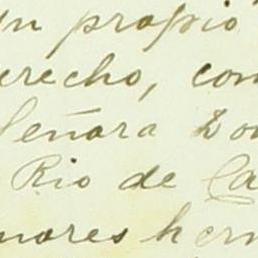 un propio
erecho, com
Señora Do
Rio de Ca
nores hern